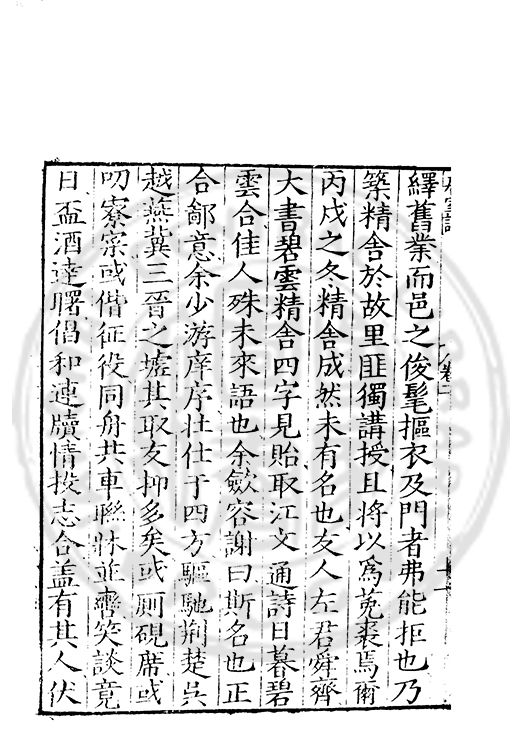 繹舊業而邑之俊髦摳衣及門者弗能拒也乃
築精舍於故里匪獨講授且將以爲菟裘焉爾
丙戌之冬精舍成然未有名也友人左君舜齊
大書碧雲精舍四字見貽取江文通詩日暮碧
雲合佳人殊未來語也余斂容謝曰斯名也正
合鄙意余少游庠序壯仕于四方驅馳荆楚吳
越燕冀三晉之墟其取友抑多矣或厠硯席或
叨寮寀或偕征役同舟共車聯牀並轡笑談竟
日盃酒達曙倡和連牘情投志合盖有其人伏